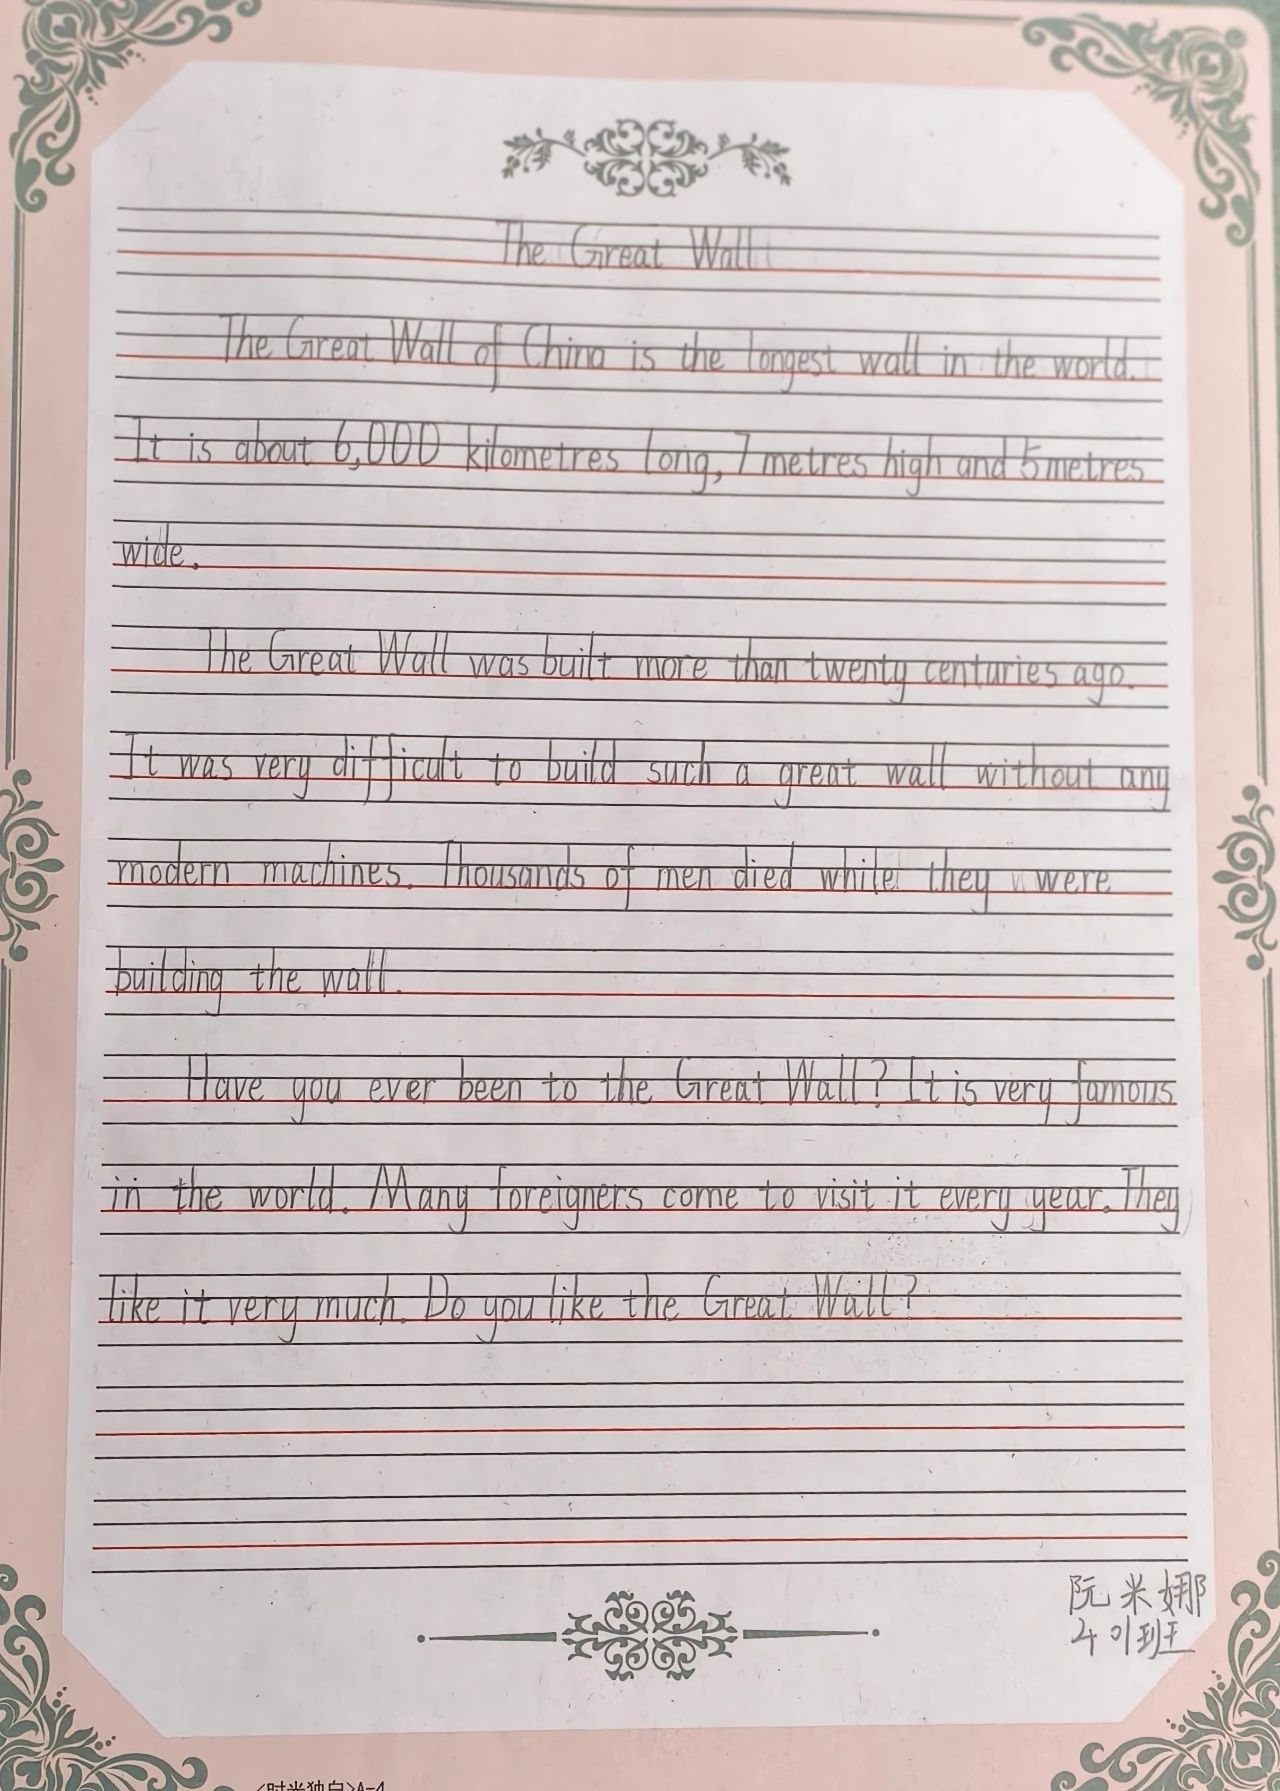 The Great Wall
The Great Wall of China is the longest wall in the world.
It is about 6,000 kilometres long, 7 metres high and 5 metres
wide.
The Great Wall was built more than twenty centuries ago.
It was very difficult to build such a great wall without any
modern machines. Thousands of men died while they were
building the wall.
Have you ever been to the Great Wall? It is very famous
in the world. Many foreigners come to visit it every year. They
like it very much. Do you like the Great Wall?
阮米娜
401班
<时光独白>A-4